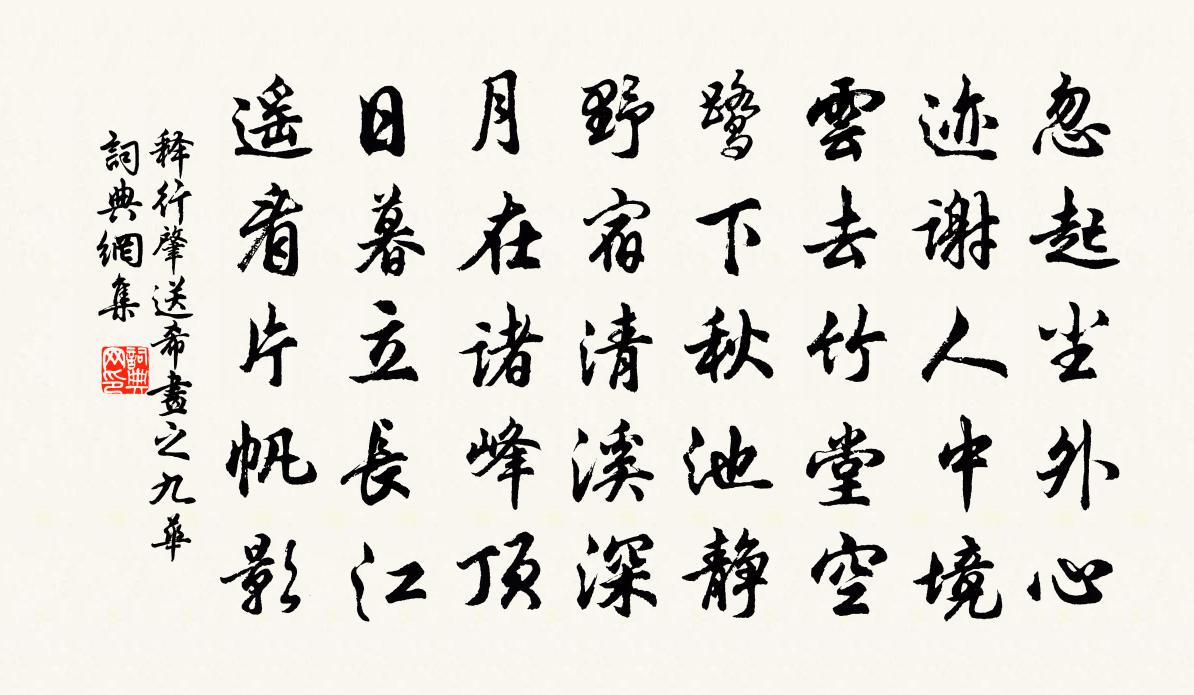 忽起尘外心
迹谢人中境
雲去竹堂空
鹭下秋池静
野宿清溪深
月在诸峰顶
日暮立長江
遥看片帆影
释行肇送希晝之九華
詞典網集
詞典网印